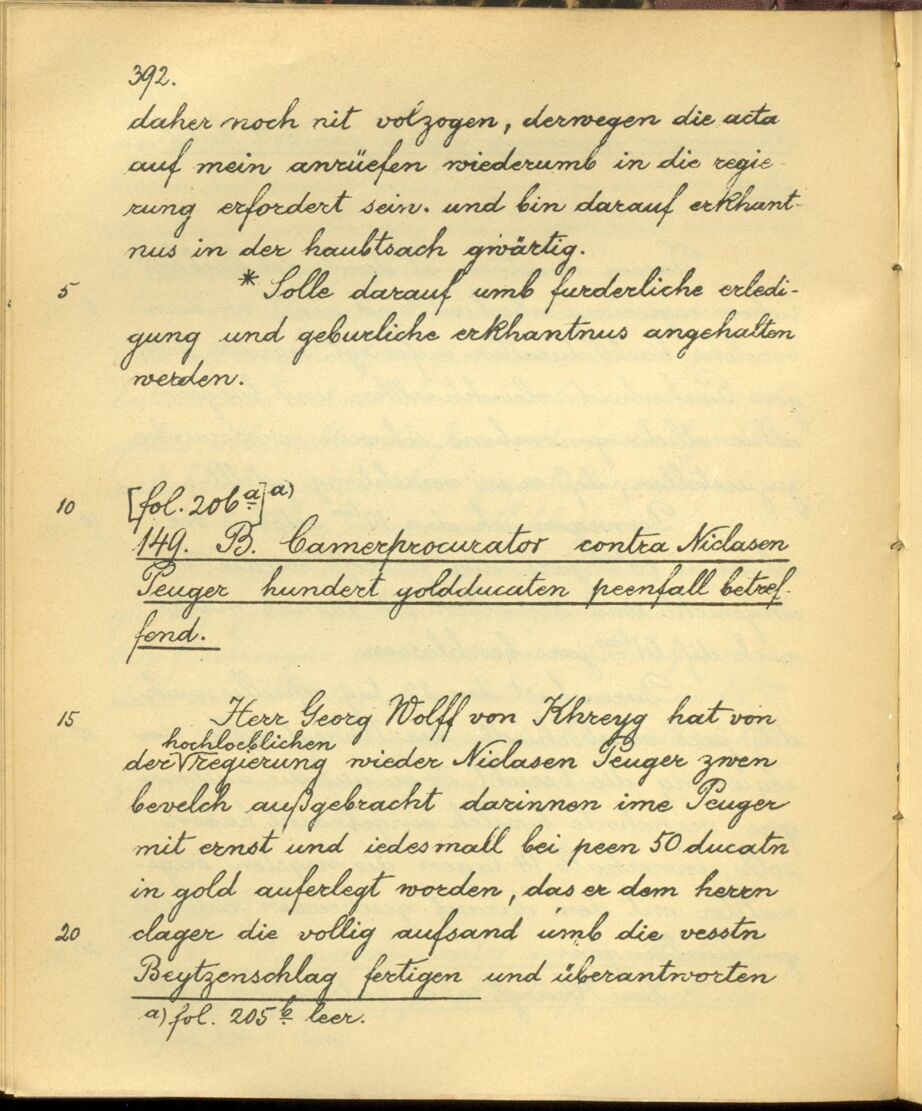 392.
daher noch nit volzogen, derwegen die acta
auf mein anrüefen wiederumb in die regie-
rung erfordert sein. und bin darauf erkhant-
nus in der haubtsach gwärtig.
5 * Solle darauf umb furderliche erledi-
gung und geburliche erkhantnus angehalten
werden.
10 [fol. 206a]a)
149. B. Camerprocurator contra Niclasen
Peuger hundert goldducaten peenfall betref-
fend.
15 Herr Georg Wolff von Khreyg hat von
hochloeblichen
der regierung wieder Niclasen Peuger zwen
bevelch außgebracht darinnen ime Peuger
mit ernst und iedesmall bei peen 50 ducatn
in gold auferlegt worden, das er dem herrn
20 clager die vollig aufsand umb die vesstn
Beytzenschlag fertigen und überantworten
a) fol. 205b leer.